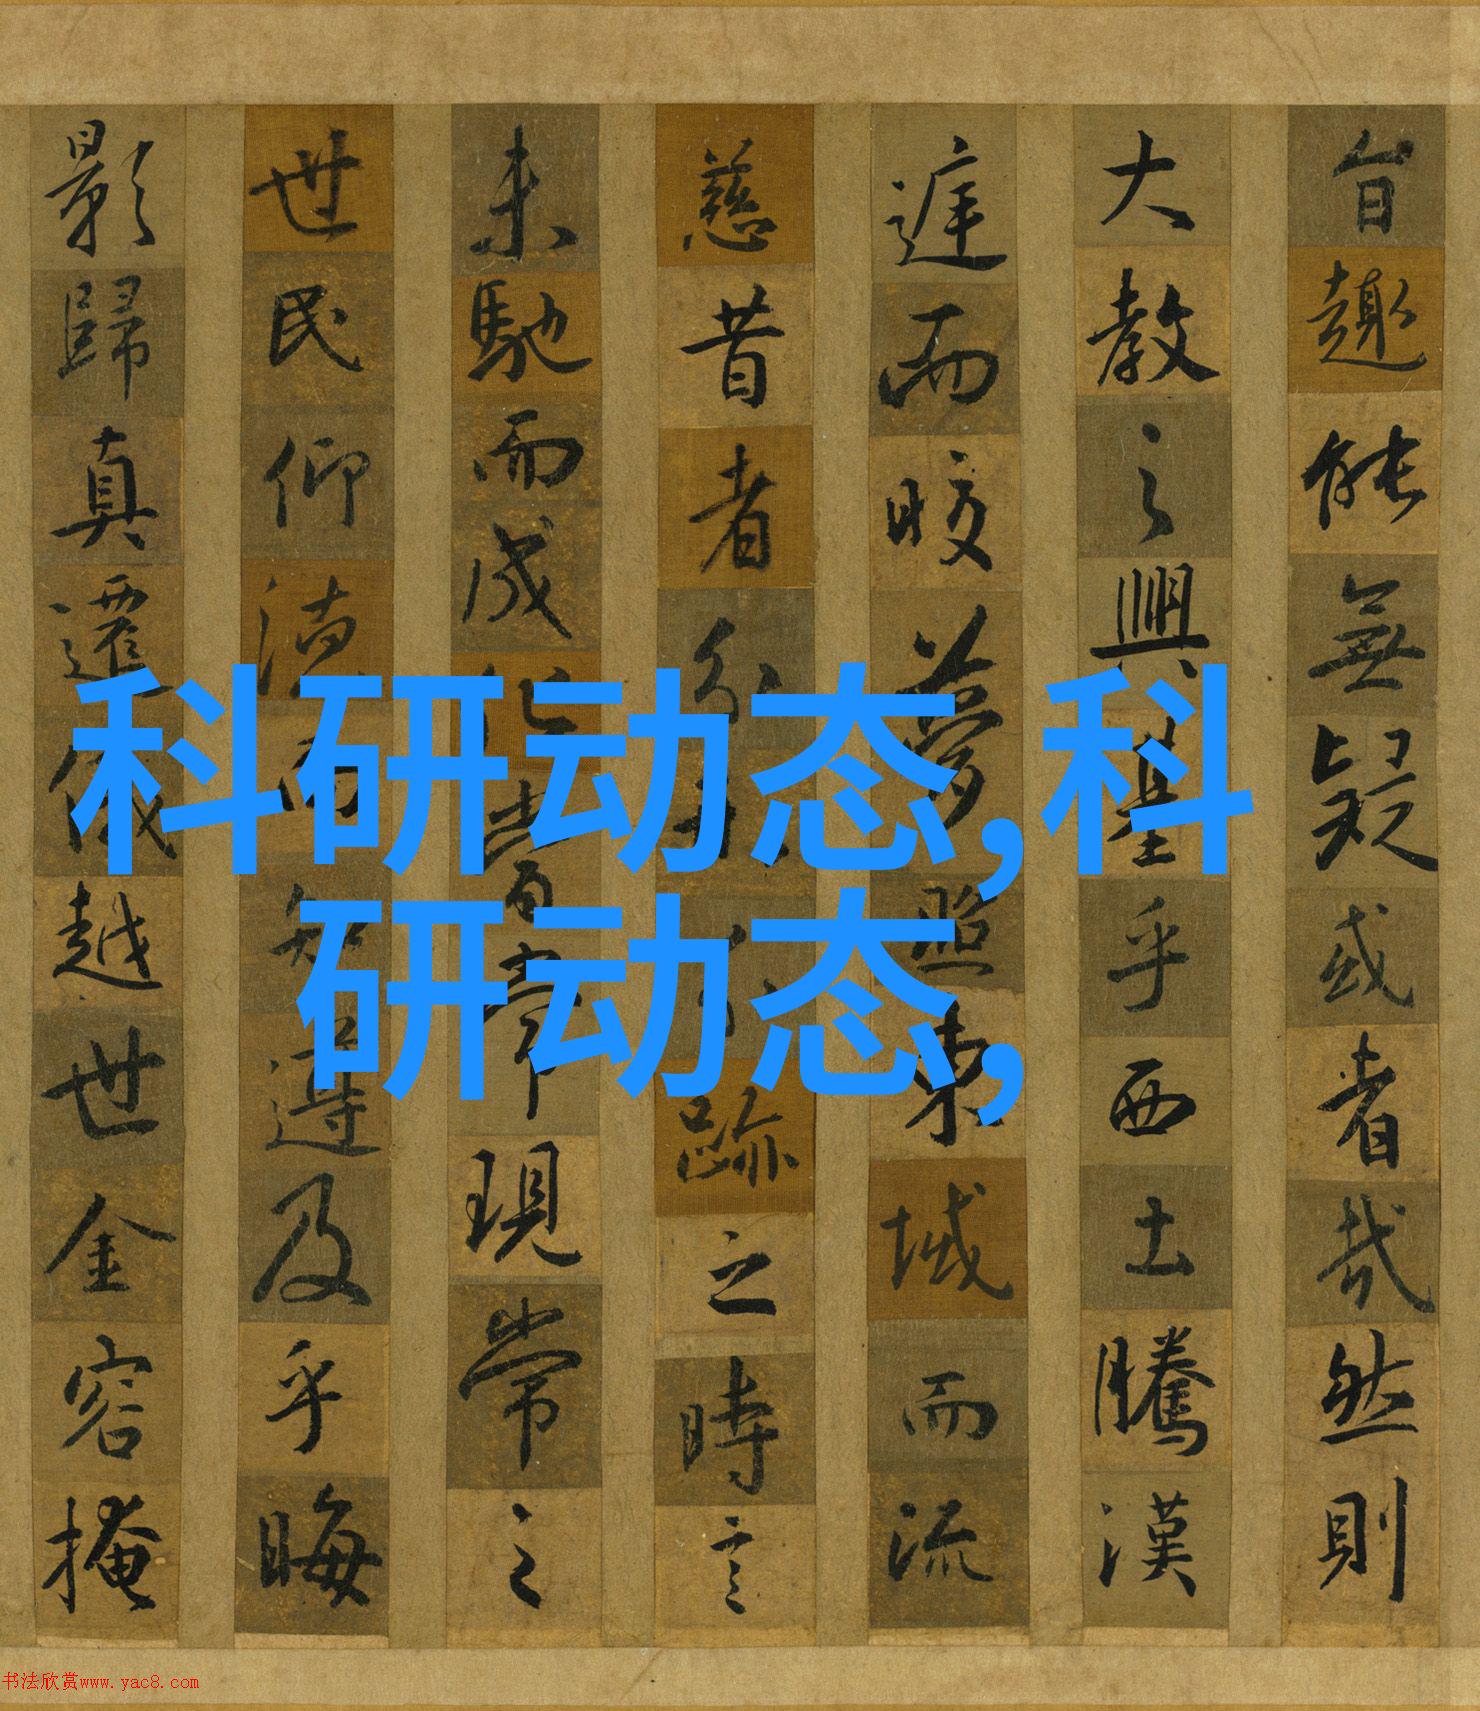 旨趣能無疑或者哉然則
大教之興基乎西土騰漢
庭而皎夢照東域而流
慈昔者分跡之時言
未馳而成化當常現常之
世民仰德而知遵及乎晦
影歸真遷儀越世金容掩
科研动态,科
研动态,
书法欣赏www.yac8.com